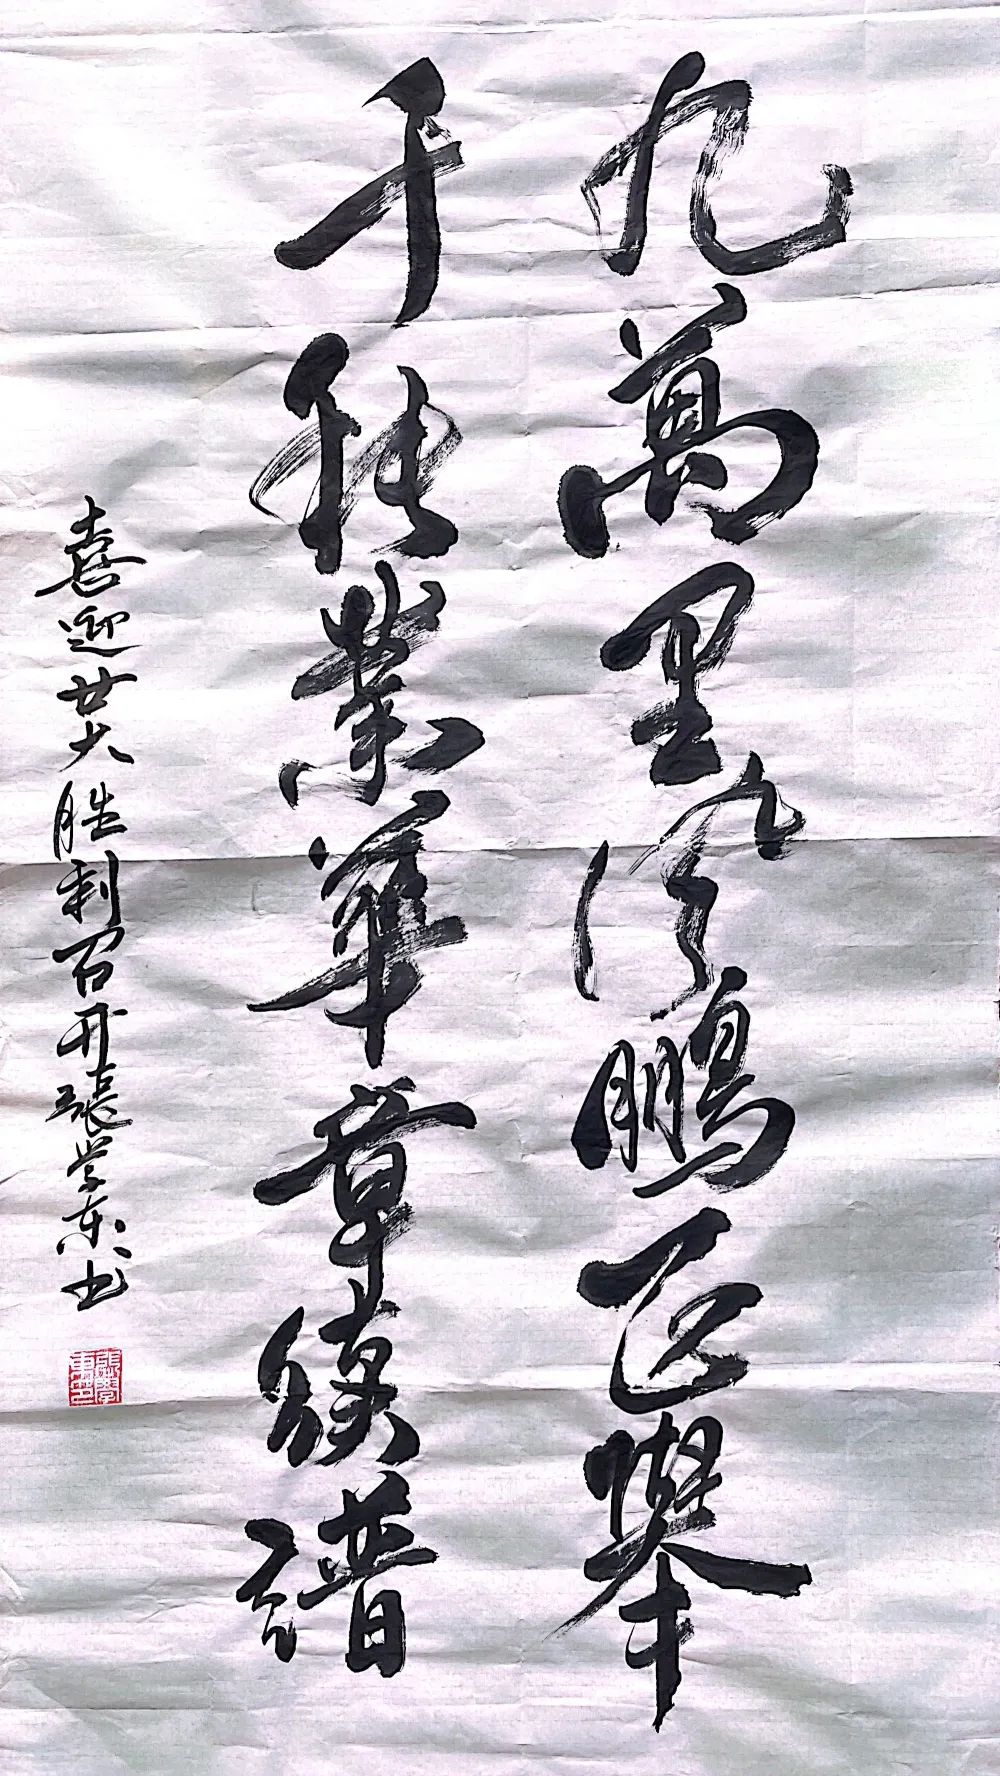 九萬里風鵬正舉
千秋業華章續譜
喜迎廿大胜利召开張学东书
張學東印